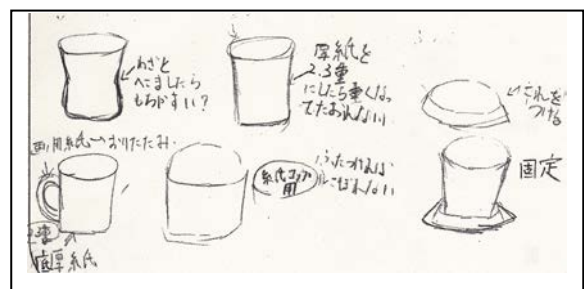 わざと
へこましたら
もちやすい?
厚紙を
2.3重
にしたら重くなっ
てたおれない
これを
つける
画用紙→おりたたみ
2.3重
底厚紙
紙コップ
用
ふたつければ
こぼれない
固定